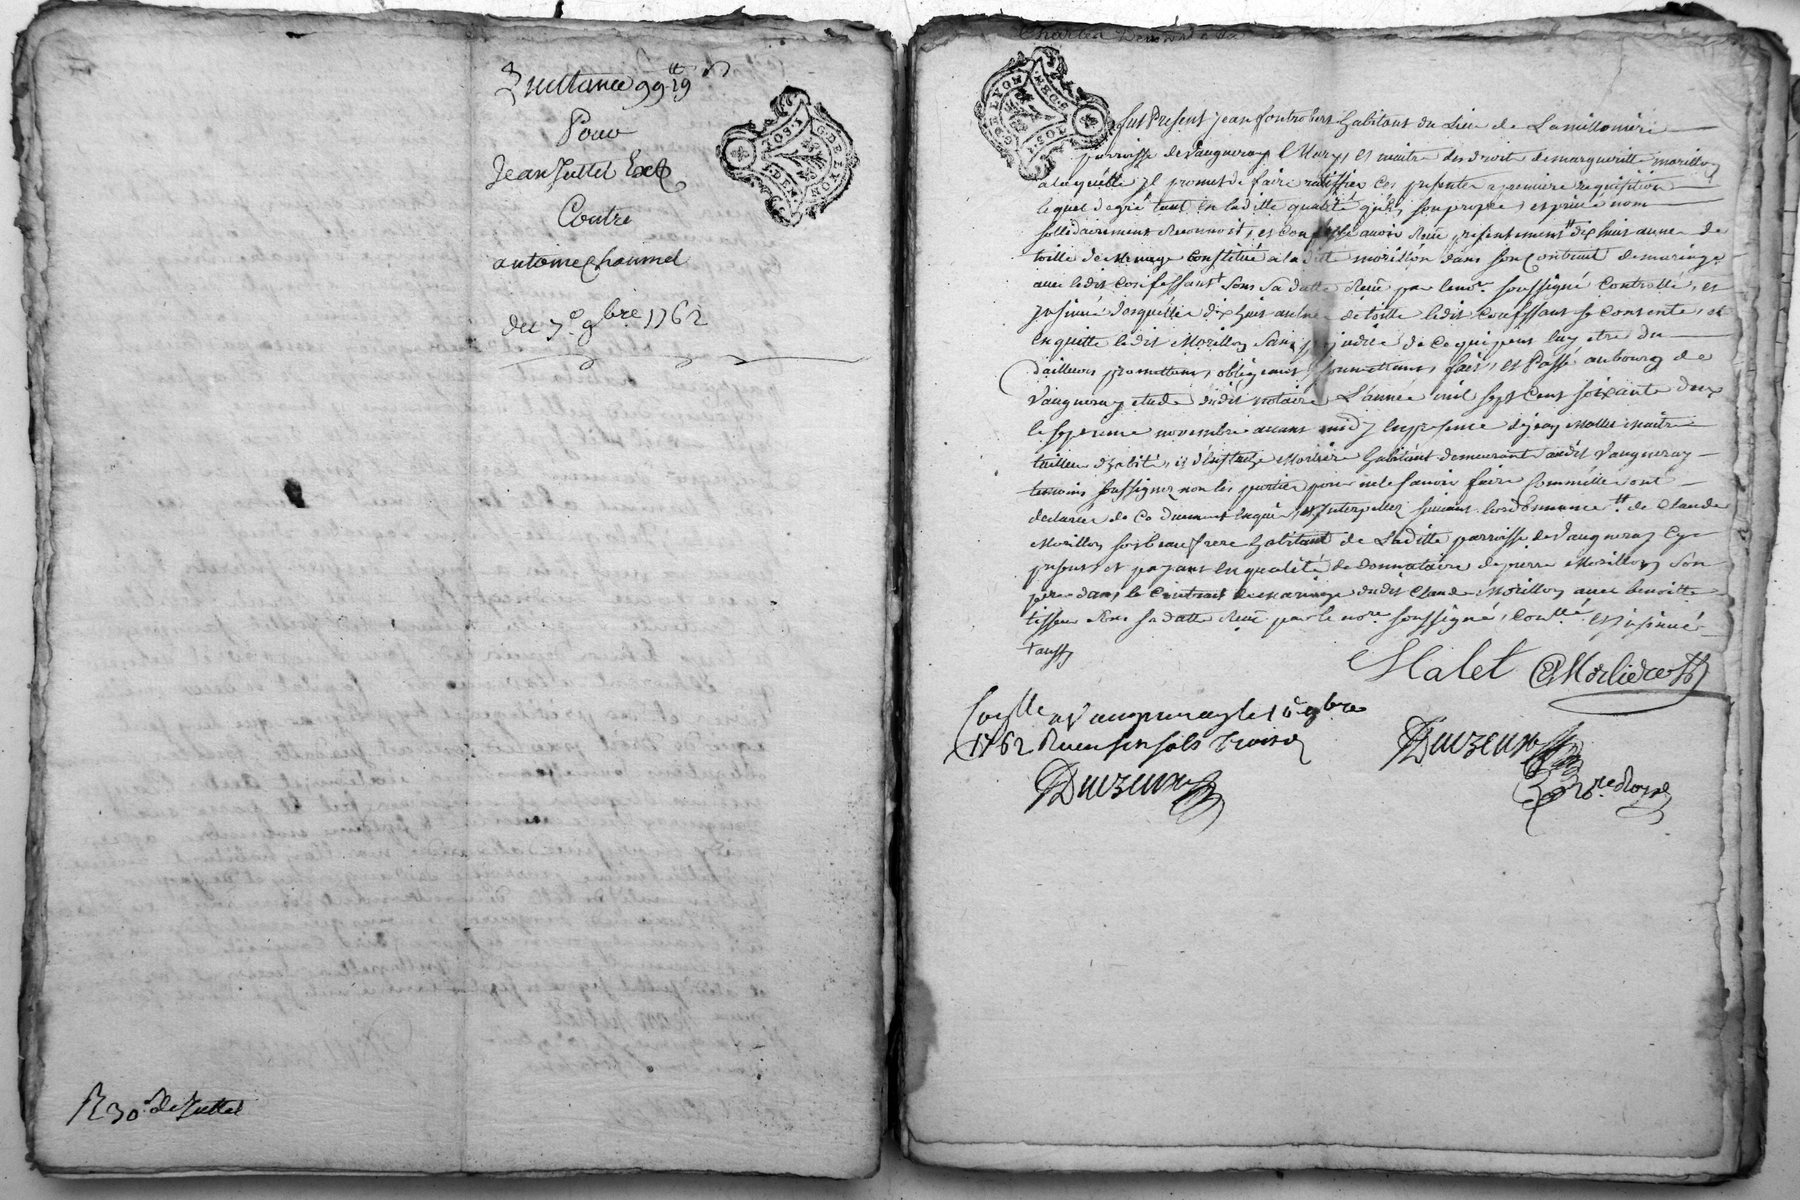 Quittance 99 ₶ 19 s
Pour
Jean Juttet
Contre
antoine Chaumel
du 7e 9bre 1762
R 30 s de Juttet
G. DE LYON
G. DE LYON
fut Present jean fontrobert habitant du Lieu de Lamillonière
parroisse de Vaugneray Mary, et maitre des droits de margueritte morillon
a laquelle Jl promet de faire ratiffier ces presentes a premiere requisition
lequel de gré tant en laditte qualité qu'en son propre, et privé nom
sollidairement reconnoit, et confesse avoir reçu presentement ⁺⁺ dix huit aunes de
toille de menage constitué a la ditte morillon dans son contrat de mariage
avec ledit confessant + sous sa datte reçu par le nore. soussigné controllé, et
jnsinué desquelles dix huit aulnes de toille ledit confessant se contente, et
en quitte ledit Morillon sans prejudice de ce qui peut luy etre du
d'ailleurs promettant, obligeant soumettant, fait, et Passé au bourg de
Vaugneray etude dudit notaire L'année mil sept cent soixante deux
le sept eme novembre avant midy en presence de jean Mallet Maitre
tailleur d'habits, et d' Morlière habitant demeurant audit Vaugneray
temoins soussignez non les parties pour ne le savoir faire comm' elles ont
declarés de ce duement enquis, et Interpellez suivant lordonnance ⁺⁺ de Claude
Morillon son beau frere habitant de Laditte parroisse de Vaugneray Cy
present et payant en qualité de donnataire de pierre Morillon son
pere dans le contrat de mariage dudit Claude Morillon avec benoitte
tisseur sous sa datte reçu par le nore. soussigné, contllé. et jnsinué
+ aussy
Malet Morlière
Contllé a Vaugneray le 10e 9bre
1762 Reçu
Duczeune
Duczeune
nre royal